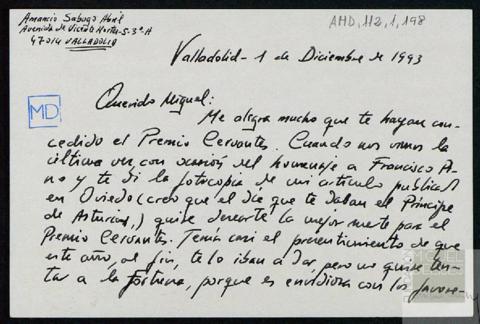 Amancio Sabugo Abril
Avenida de Vicente Mortes-5-3º-A
47014 VALLADOLID
AMD,112,1,198
Valladolid - 1 de Diciembre de 1993
MD
Querido Miguel:
Me alegra mucho que te hayan con-
cedido el Premio Cervantes. Cuando nos vimos la
última vez, con ocasión del homenaje a Francisco Pi-
no y te di la fotocopia de mi artículo publicad
en Oviedo (creo que el día que te daban el Príncipe
de Asturias,) quise desearte la mejor suerte para el
Premio Cervantes. Tenía casi el presentimiento de que
este año, al fin, te lo iban a dar, pero no quise ten-
tar a la fortuna, porque es envidiosa con los favore-